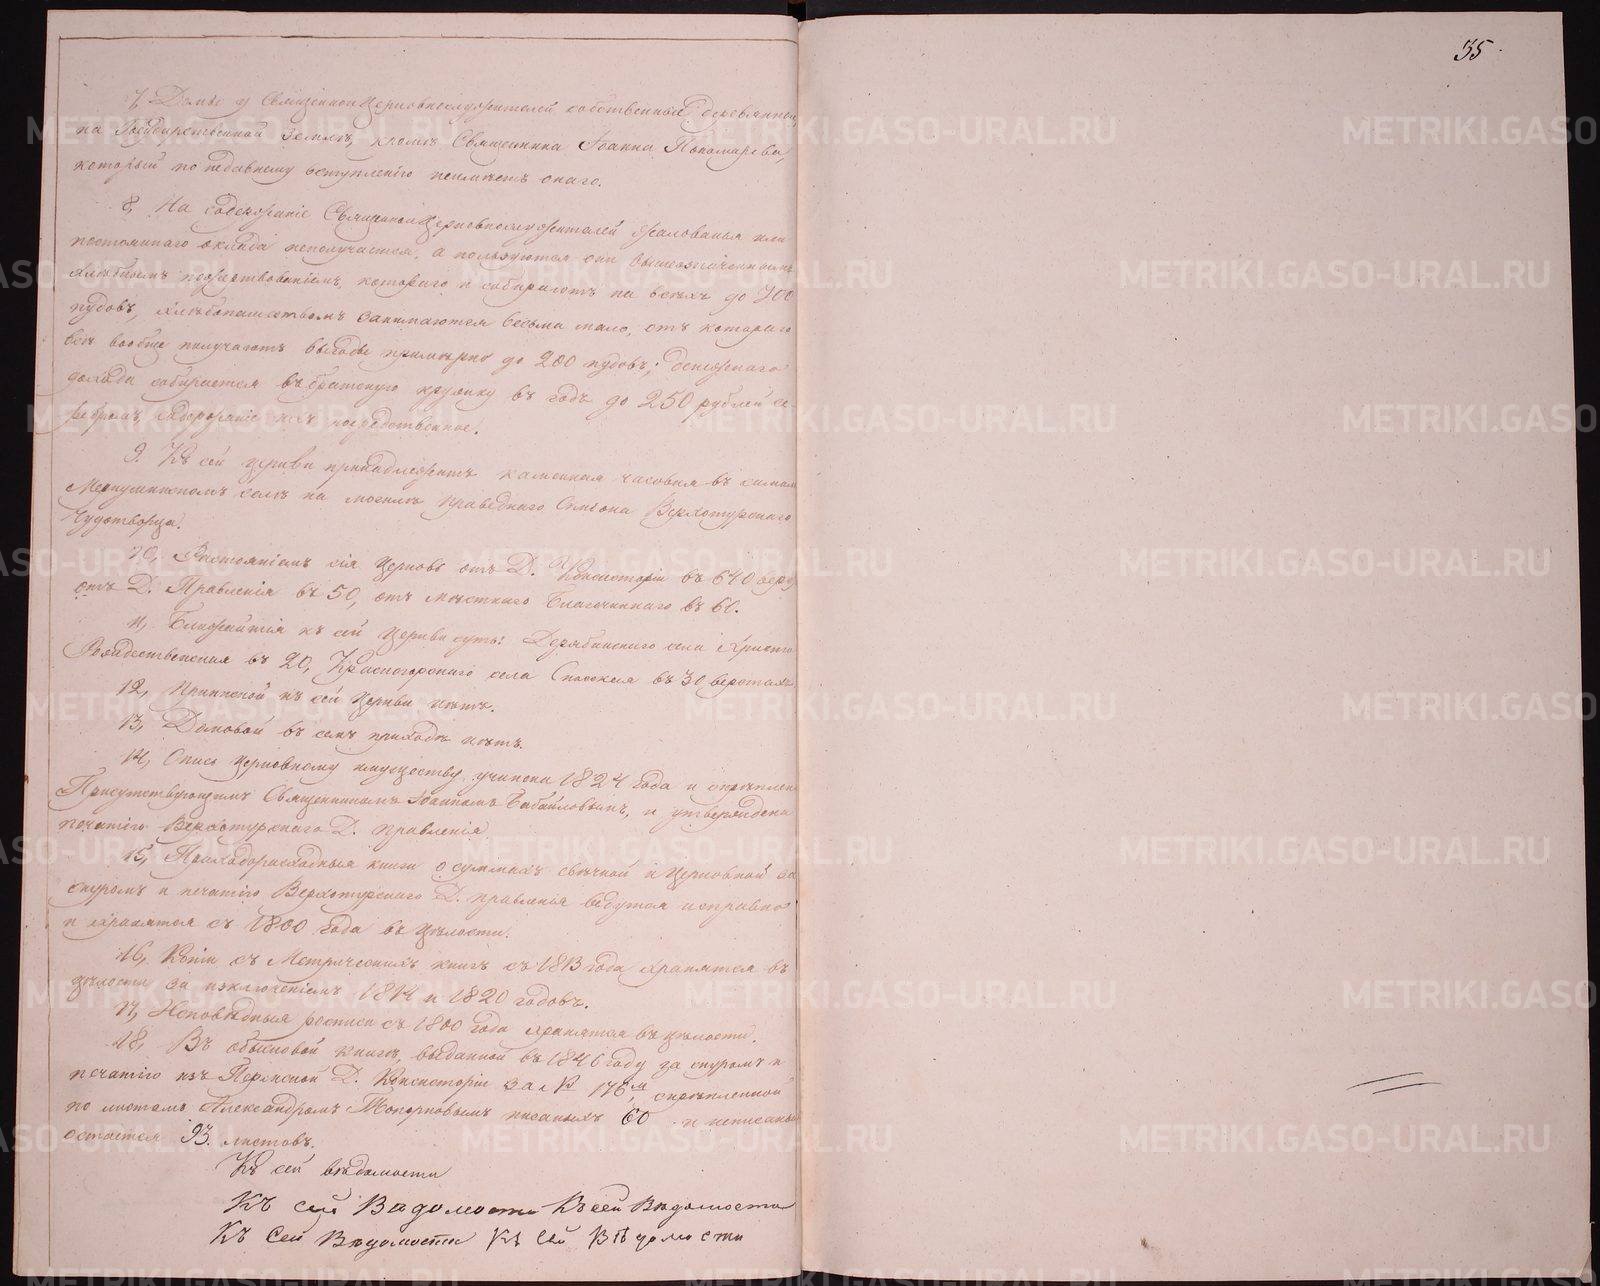 35.
7, Домы у Священноцерковнослужителей собственные деревянные,
на Государственной земле, кроме Священника Іоанна Пономарева,
который по недавнему вступленію неимѣетъ онаго.
8, На содержаніе Священноцерковнослужителей жалованья или
постояннаго оклада неполучается, а пользуются они вышеозначеннымъ
хлѣбнымъ подаствованіемъ, котораго и собираютъ на всѣхъ до 700
пудовъ, хлѣбопашествомъ занимаются весьма мало, отъ котораго
всѣ вообще получаютъ выгоды примѣрно до 200 пудовъ; денежнаго
дохода собирается въ братскую кружку въ годъ до 250 рублей се-
ребромъ, содержаніе ихъ посредственное.
9. Къ сей церкви принадлежитъ каменная часовня въ самомъ
Меркушинскомъ селѣ на могилѣ праведнаго Симеона Верхотурскаго
Чудотворца.
10, Разстояніемъ сія церковь отъ Д. Консисторіи въ 640 верс
отъ Д. Правленія въ 50, отъ мѣстнаго Благочиннаго въ 60.
11, Ближайшія къ сей церкви суть: Дерябинскаго села Христо
Рождественская въ 20, Красногорскаго села Спасская въ 30 верстахъ
12, Приписной къ сей церкви нѣтъ.
13, Домовой въ семъ приходѣ нѣтъ.
14, Опись церковному имуществу учинена 1824 года и скрѣплена
Присутствующимъ Священникомъ Іоанномъ Бабайловымъ, и утверждена
печатію Верхотурскаго Д. правленія
15, Приходорасходныя книги о суммахъ свѣчной и церковной за
шнуромъ и печатію Верхотурскаго Д. правленія ведутся исправно
и хранятся съ 1800 года въ цѣлости.
16, Копіи съ Метрическихъ книгъ съ 1813 года хранятся въ
цѣлости за изключеніемъ 1814 и 1820 годовъ.
17, Исповѣдныя росписи съ 1800 года хранятся въ цѣлости.
18, Въ обыскной книгѣ, выданной въ 1846 году за шнуромъ и
печатію изъ Пермской Д. Консисторіи за № 176м, скрѣпленной
по листамъ Александромъ Топорковымъ писаныхъ 60 и неписаныхъ
остается 93 листовъ.
Къ сей вѣдомости
Къ сей Вѣдомости Къ сей Вѣдомости
Къ Сей Вѣдомости Къ Сей Вѣдомости